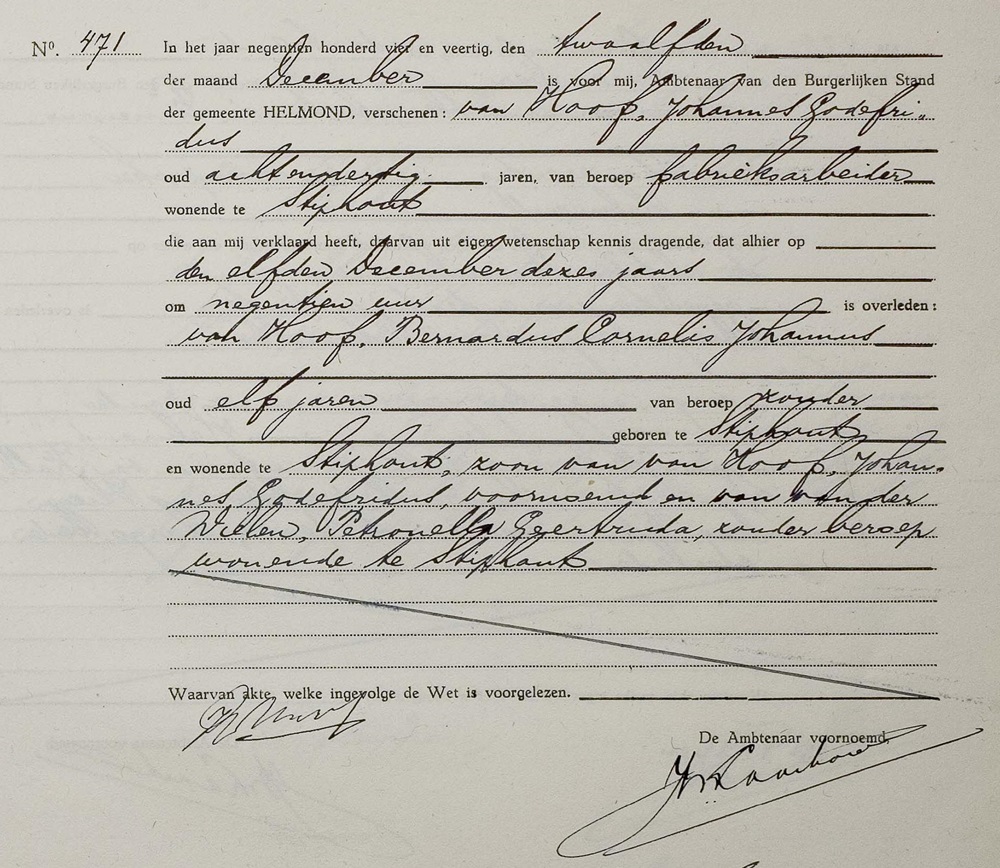 Nº. 471 In het jaar negentien honderd vier en veertig, den twaalfden
der maand December is voor mij, Ambtenaar van den Burgerlijken Stand
der gemeente HELMOND, verschenen: van Hoof, Johannes Godefri-
dus
oud achtendertig jaren, van beroep fabrieksarbeider
wonende te Stiphout
die aan mij verklaard heeft, daarvan uit eigen wetenschap kennis dragende, dat alhier op
den elfden December dezes jaars
om negentien uur is overleden:
van Hoof, Bernardus Cornelis Johannus
oud elf jaren van beroep zonder
geboren te Stiphout
en wonende te Stiphout, zoon van van Hoof, Johan-
nes Godefridus, voornoemd en van van der
Petronella Geertruda, zonder beroep
wonende te Stiphout
Waarvan akte, welke ingevolge de Wet is voorgelezen.
De Ambtenaar voornoemd,